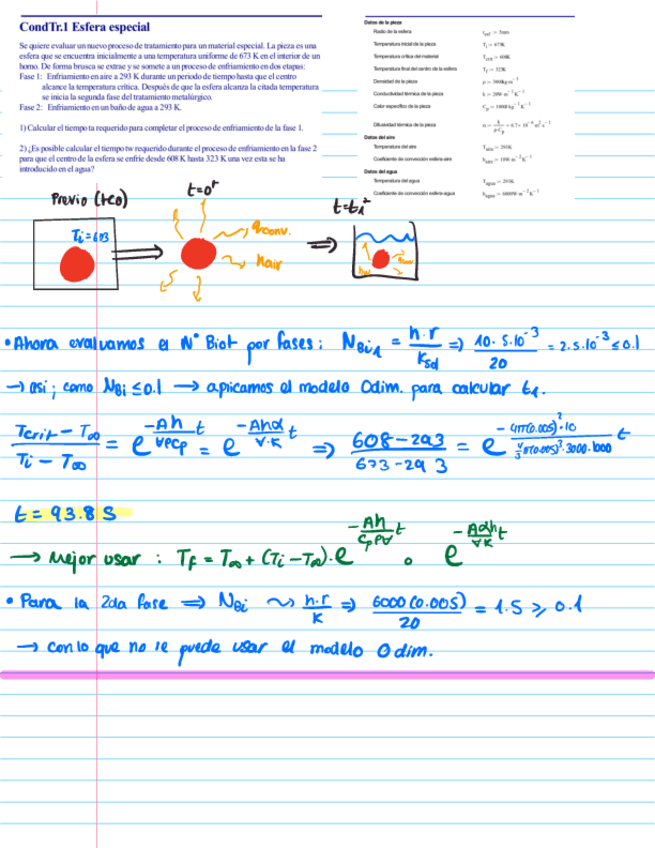 CondTr.1 Esfera especial
Se quiere evaluar un nuevo proceso de tratamiento para un material especial. La pieza es una
esfera que se encuentra inicialmente a una temperatura uniforme de 673 K en el interior de un
horno. De forma brusca se extrae y se somete a un proceso de enfriamiento en dos etapas:
Fase 1: Enfriamiento en aire a 293 K durante un periodo de tiempo hasta que el centro
alcance la temperatura crítica. Después de que la esfera alcanza la citada temperatura
se inicia la segunda fase del tratamiento metalúrgico.
Fase 2: Enfriamiento en un baño de agua a 293 K.
1) Calcular el tiempo ta requerido para completar el proceso de enfriamiento de la fase 1.
2) ¿Es posible calcular el tiempo tw requerido durante el proceso de enfriamiento en la fase 2
para que el centro de la esfera se enfríe desde 608 K hasta 323 K una vez esta se ha
introducido en el agua?
Datos de la pieza
Radio de la esfera r_esf := 5mm
Temperatura inicial de la pieza T_i := 673K
Temperatura crítica del material T_crit := 608K
Temperatura final del centro de la esfera T_f := 323K
Densidad de la pieza ρ := 3000kg m^-3
Conductividad térmica de la pieza k := 20W m^-1 K^-1
Calor específico de la pieza C_p := 1000J kg^-1 K^-1
Difusividad térmica de la pieza α := k/(ρ C_p) = 6.7× 10^-6 m^2 s^-1
Datos del aire
Temperatura del aire T_aire := 293K
Coeficiente de convección esfera-aire h_aire := 10W m^-2 K^-1
Datos del agua
Temperatura del agua T_agua := 293K
Coeficiente de convección esfera-agua h_agua := 6000W m^-2 K^-1
Previo (t<0)
t=0⁺
Ti=603
qconv.
hair
• Ahora evaluamos el Nº Biot por fases: N_Bi1 = h·r/k_sd => 10·5·10^-3/20 = 2.5·10^-3 ≤ 0.1
→ asi; como N_Bi ≤ 0.1 → apicamos el modelo 0dim. para calcular t1.
(Tcrit - T∞)/(Ti - T∞) = e^(-Ah/(∀ρcp) t) = e^(-Ahα/(∀·k) t) => (608-293)/(673-293) = e^(-(4π(0.005)²·10)/(4/3 π(0.005)³·3000·1000) t)
t = 93.8 s
→ Mejor usar: Tf = T∞ + (Ti - T∞)·e^(-Ah/(Cpρ∀) t) o e^(-Aαh/(∀k) t)
• Para la 2da fase => N_Bi ~> h·r/k => 6000(0.005)/20 = 1.5 ≥ 0.1
→ con lo que no se puede usar el modelo 0dim.